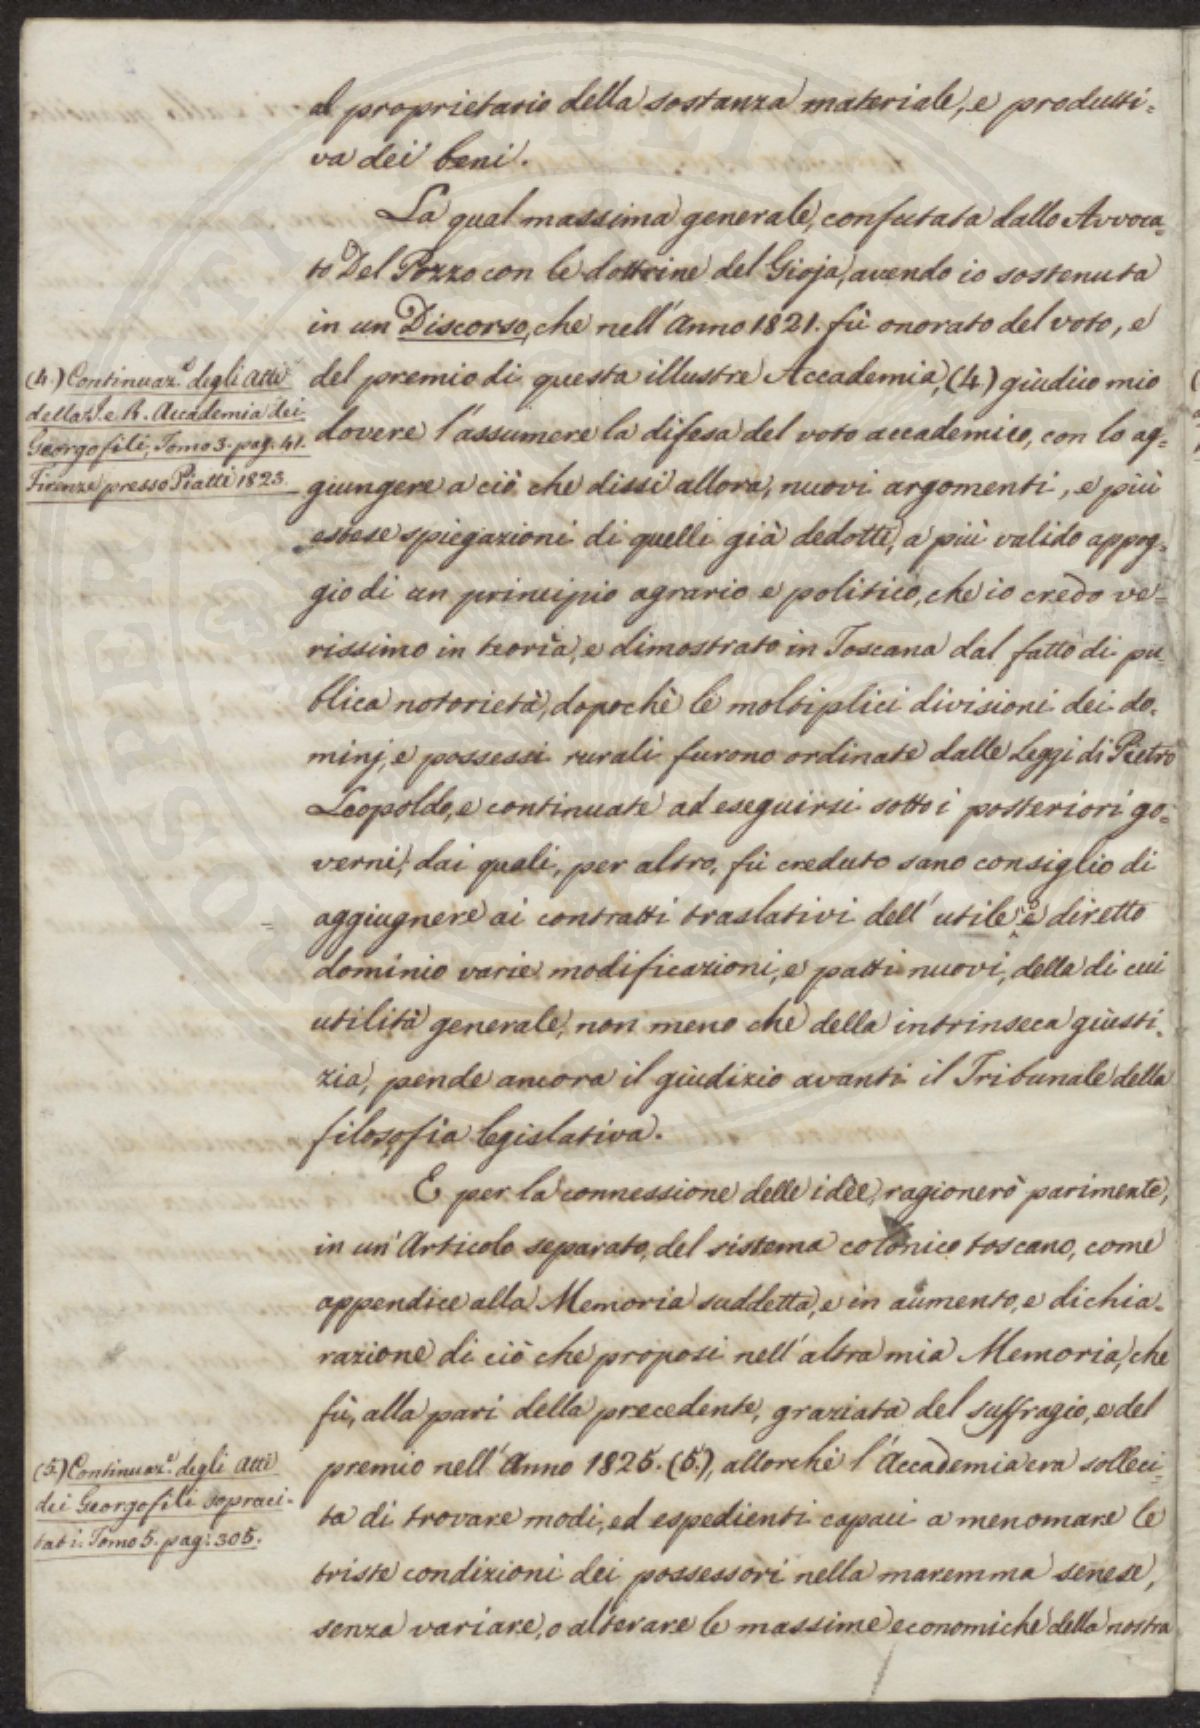 al proprietario della sostanza materiale, e produtti=
va dei beni.
La qual massima generale, confutata dallo Avvoca=
to Del Pozzo con le dottrine del Gioja, avendo io sostenuta
in un Discorso, che nell' Anno 1821. fù onorato del voto, e
del premio di questa illustre Accademia, (4.) giudico mio
dovere l'assumere la difesa del voto accademico, con lo ag=
giungere a ciò che dissi allora, nuovi argomenti, e più
estese spiegazioni di quelli già dedotti, a più valido appog=
gio di un principio agrario e politico, che io credo ve=
rissimo in teorìa, e dimostrato in Toscana dal fatto di pu=
blica notorietà, dopochè le moltiplici divisioni dei do=
minj, e possessi rurali furono ordinate dalle Leggi di Pietro
Leopoldo, e continuate ad eseguirsi sotto i posteriori go=
verni; dai quali, per altro, fù creduto sano consiglio di
aggiugnere ai contratti traslativi dell' utile e diretto
dominio varie modificazioni, e patti nuovi, della di cui
utilità generale, non meno che della intrinseca giusti=
zia, pende ancora il giudizio avanti il Tribunale della
filosofia legislativa.
E per la connessione delle idèe, ragionerò parimente,
in un' Articolo separato, del sistema colonico toscano, come
appendice alla Memoria suddetta, e in aumento, e dichia=
razione di ciò che proposi nell' altra mia Memoria, che
fù, alla pari della precedente, graziata del suffragio, e del
premio nell' Anno 1825. (5.), allorchè l'Accademia era solleci=
ta di trovare modi, ed espedienti capaci a menomare le
triste condizioni dei possessori nella maremma senese,
senza variare, o alterare le massime economiche della nostra
(4.) Continuaz.e degli Atti
della I. e R. Accademia dei
Georgofili, Tomo 3. pag. 41.
Firenze presso Piatti 1823.
(5.) Continuaz.e degli Atti
dei Georgofili sopraci=
tati. Tomo 5. pag: 305.